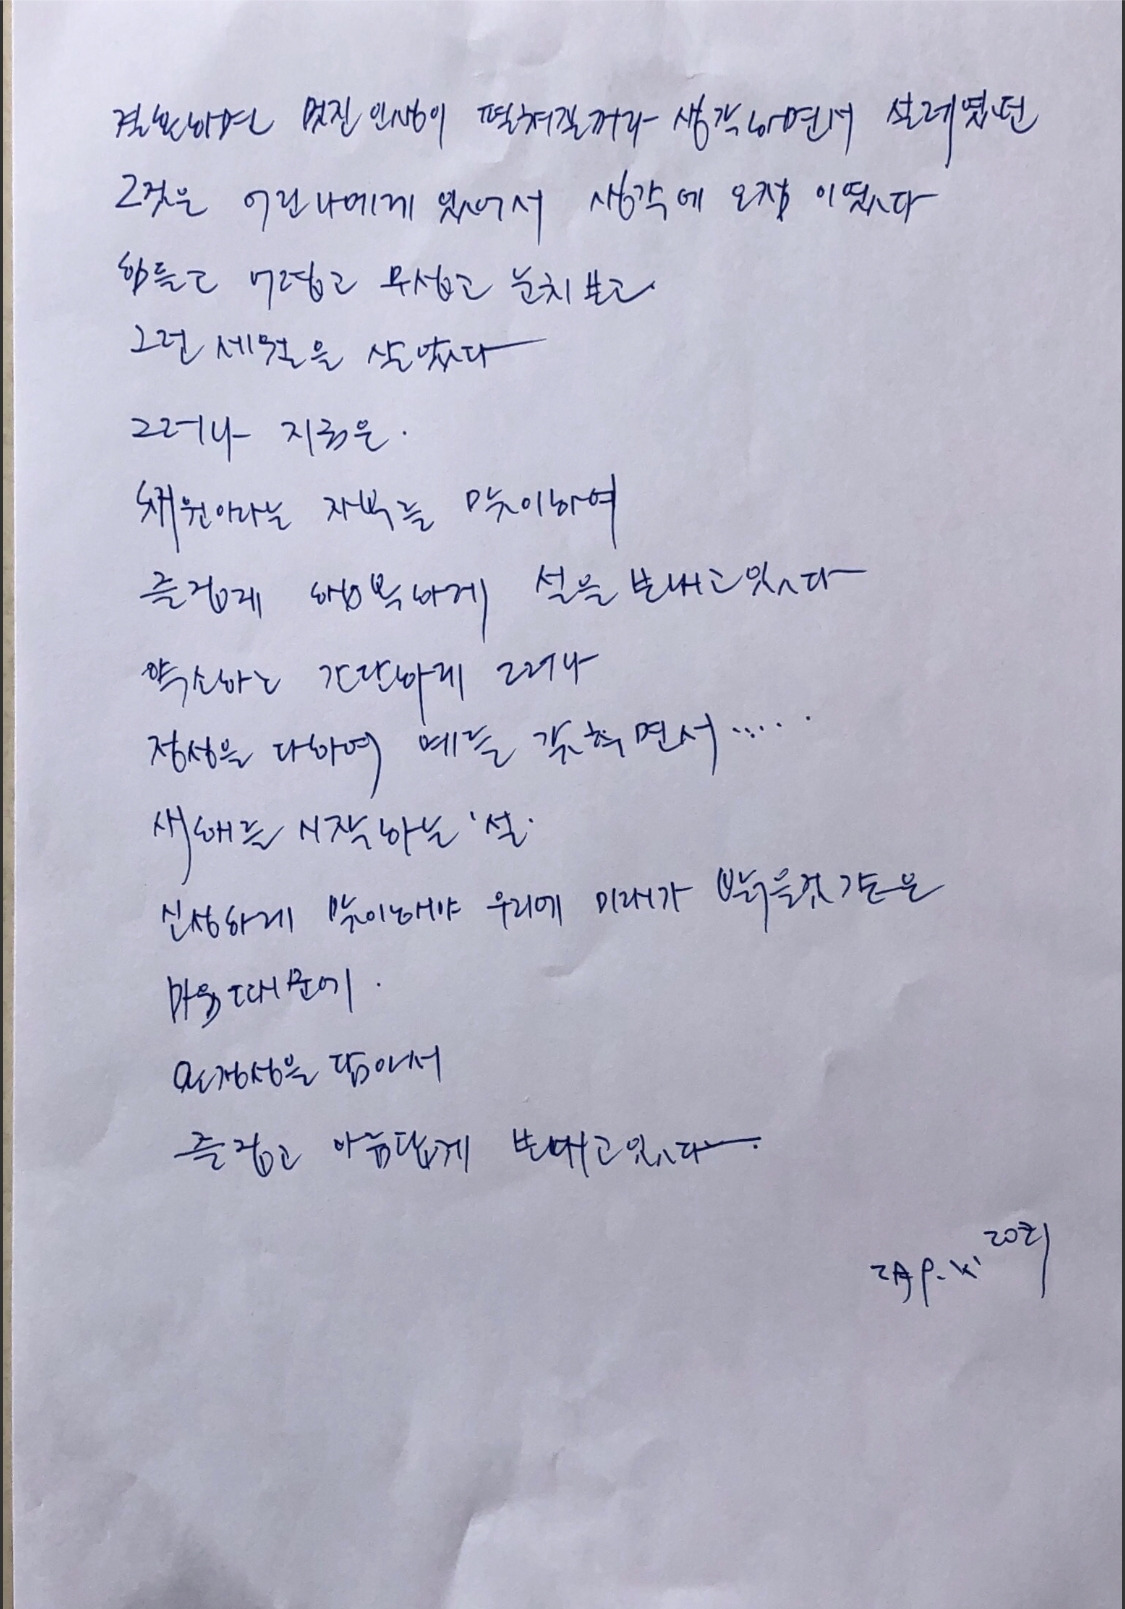 결혼하면 멋진 인생이 펼쳐질꺼라 생각하면서 설레였던
그것은 어린나에게 있어서 생각에 오점 이였다
힘들고 어렵고 무섭고 눈치보고
그런 세월을 살았다
그러나 지금은.
채원이라는 자부를 맞이하여
즐겁게 행복하게 설을 보내고있다
약소하는 간단하게 그러나
정성을 다하여 예를 갖추면서.....
새해를 시작하는 '설'
신성하게 맞이해야 우리에 미래가 밝을것 같은
마음때문에.
온정성을 담아서
즐겁고 아름답게 보내고있다.